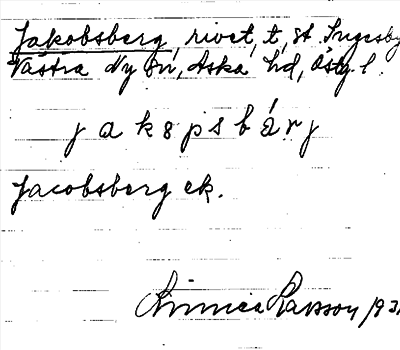 Jakobsberg, rivet, t, st Ingesby
Västra Ny sn, Aska hd, Östg l.
j a k s p s b ä r j
Jacobsberg ek.
Linnea Larsson 193